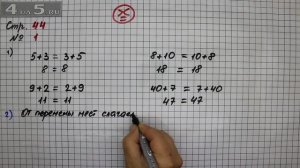 4 DS.NET
Стр. 44
№ 1
1)
5+3 = 3+5
8 = 8
8+10 = 10+8
18 = 18
9+2 = 2+9
11 = 11
40+7 = 7+40
47 = 47
2) От перемены мест слагаем